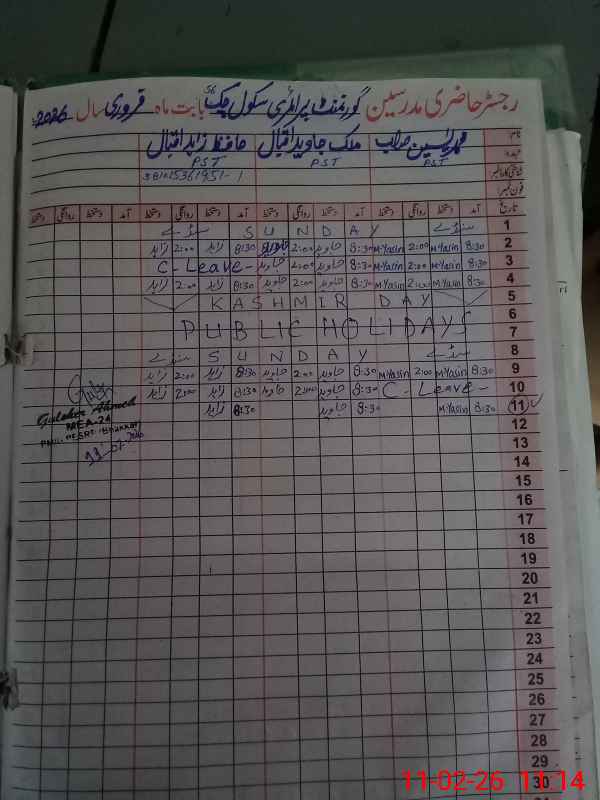 رجسٹر حاضری مدرسین گورنمنٹ پرائمری سکول چک 56 بابت ماہ فروری سال 2026
نام محمد یٰسین ملک جاوید اقبال حافظ زاہد اقبال
عہدہ PST PST PST
شناختی کارڈ نمبر
فون نمبر
تاریخ آمد دستخط روانگی دستخط آمد دستخط روانگی دستخط آمد دستخط روانگی دستخط آمد دستخط روانگی دستخط
1 سنڈے SUNDAY سنڈے
2 8:30 M.Yasin 2:00 M.Yasin 8:30 جاوید 2:00 جاوید 8:30 زاہد 2:00 زاہد
3 8:30 M.Yasin 2:00 M.Yasin 8:30 جاوید 2:00 جاوید C-Leave-
4 8:30 M.Yasin 2:00 M.Yasin 8:30 جاوید 2:00 جاوید 8:30 زاہد 2:00 زاہد
5 KASHMIR DAY
6
PUBLIC HOLIDAYS
7
8 سنڈے SUNDAY سنڈے
9 8:30 M.Yasin 2:00 M.Yasin 8:30 جاوید 2:00 جاوید 8:30 زاہد 2:00 زاہد
10 C-Leave- 8:30 جاوید 2:00 جاوید 8:30 زاہد 2:00 زاہد
11 8:30 M.Yasin 8:30 جاوید 8:30 زاہد
MEA-24
12
13
14
15
16
17
18
19
20
21
22
23
24
25
26
27
28
29
30
11-02-26 11:14